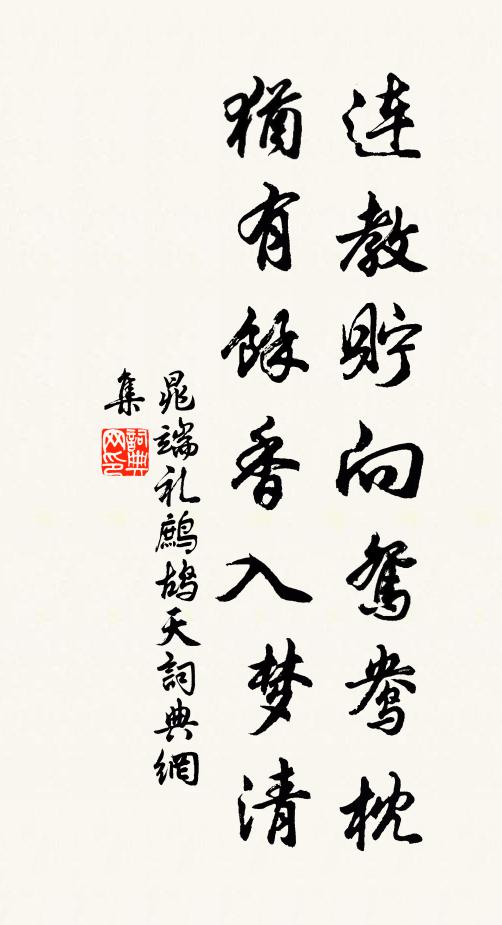 连教貯向鴛鴦枕
猶有餘香入梦清
晁端礼鷓鴣天詞典網
集
詞典
网印